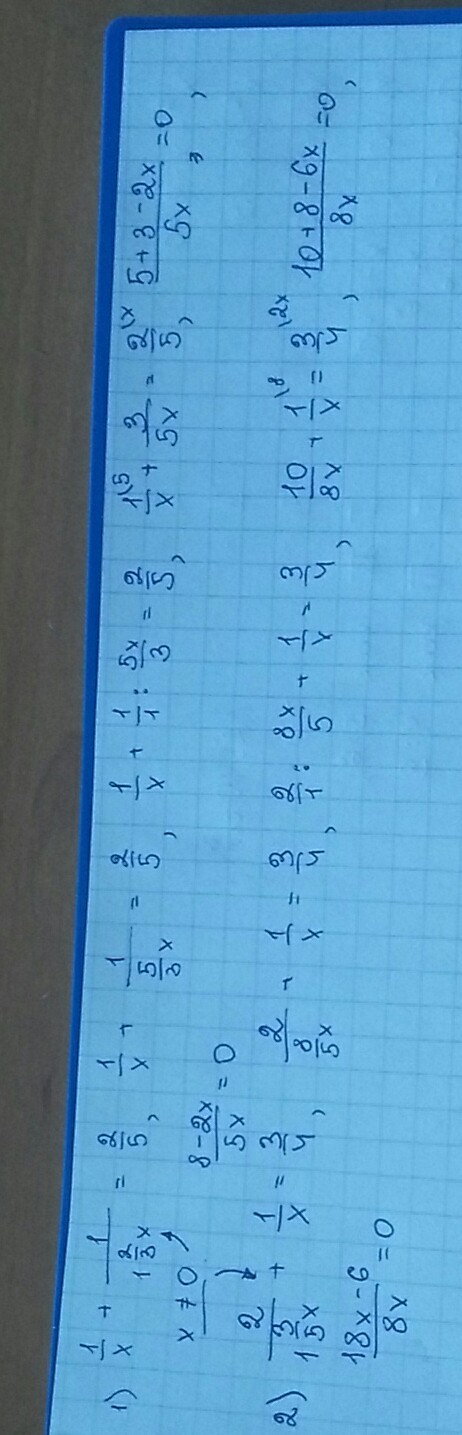 1) 1/x + 1/(1 2/3 x) = 2/5, 1/x + 1/(5/3 x) = 2/5, 1/x + 1/1 : 5x/3 = 2/5, 1\5/x + 3/5x = 2\x/5, (5+3-2x)/5x = 0,
x ≠ 0, (8-2x)/5x = 0
2) 2/(1 3/5 x) + 1/x = 3/4, 2/(8/5 x) + 1/x = 3/4, 2/1 : 8x/5 + 1/x = 3/4, 10/8x + 1\8/x = 3\2x/4, (10+8-6x)/8x = 0,
(18x-6)/8x = 0